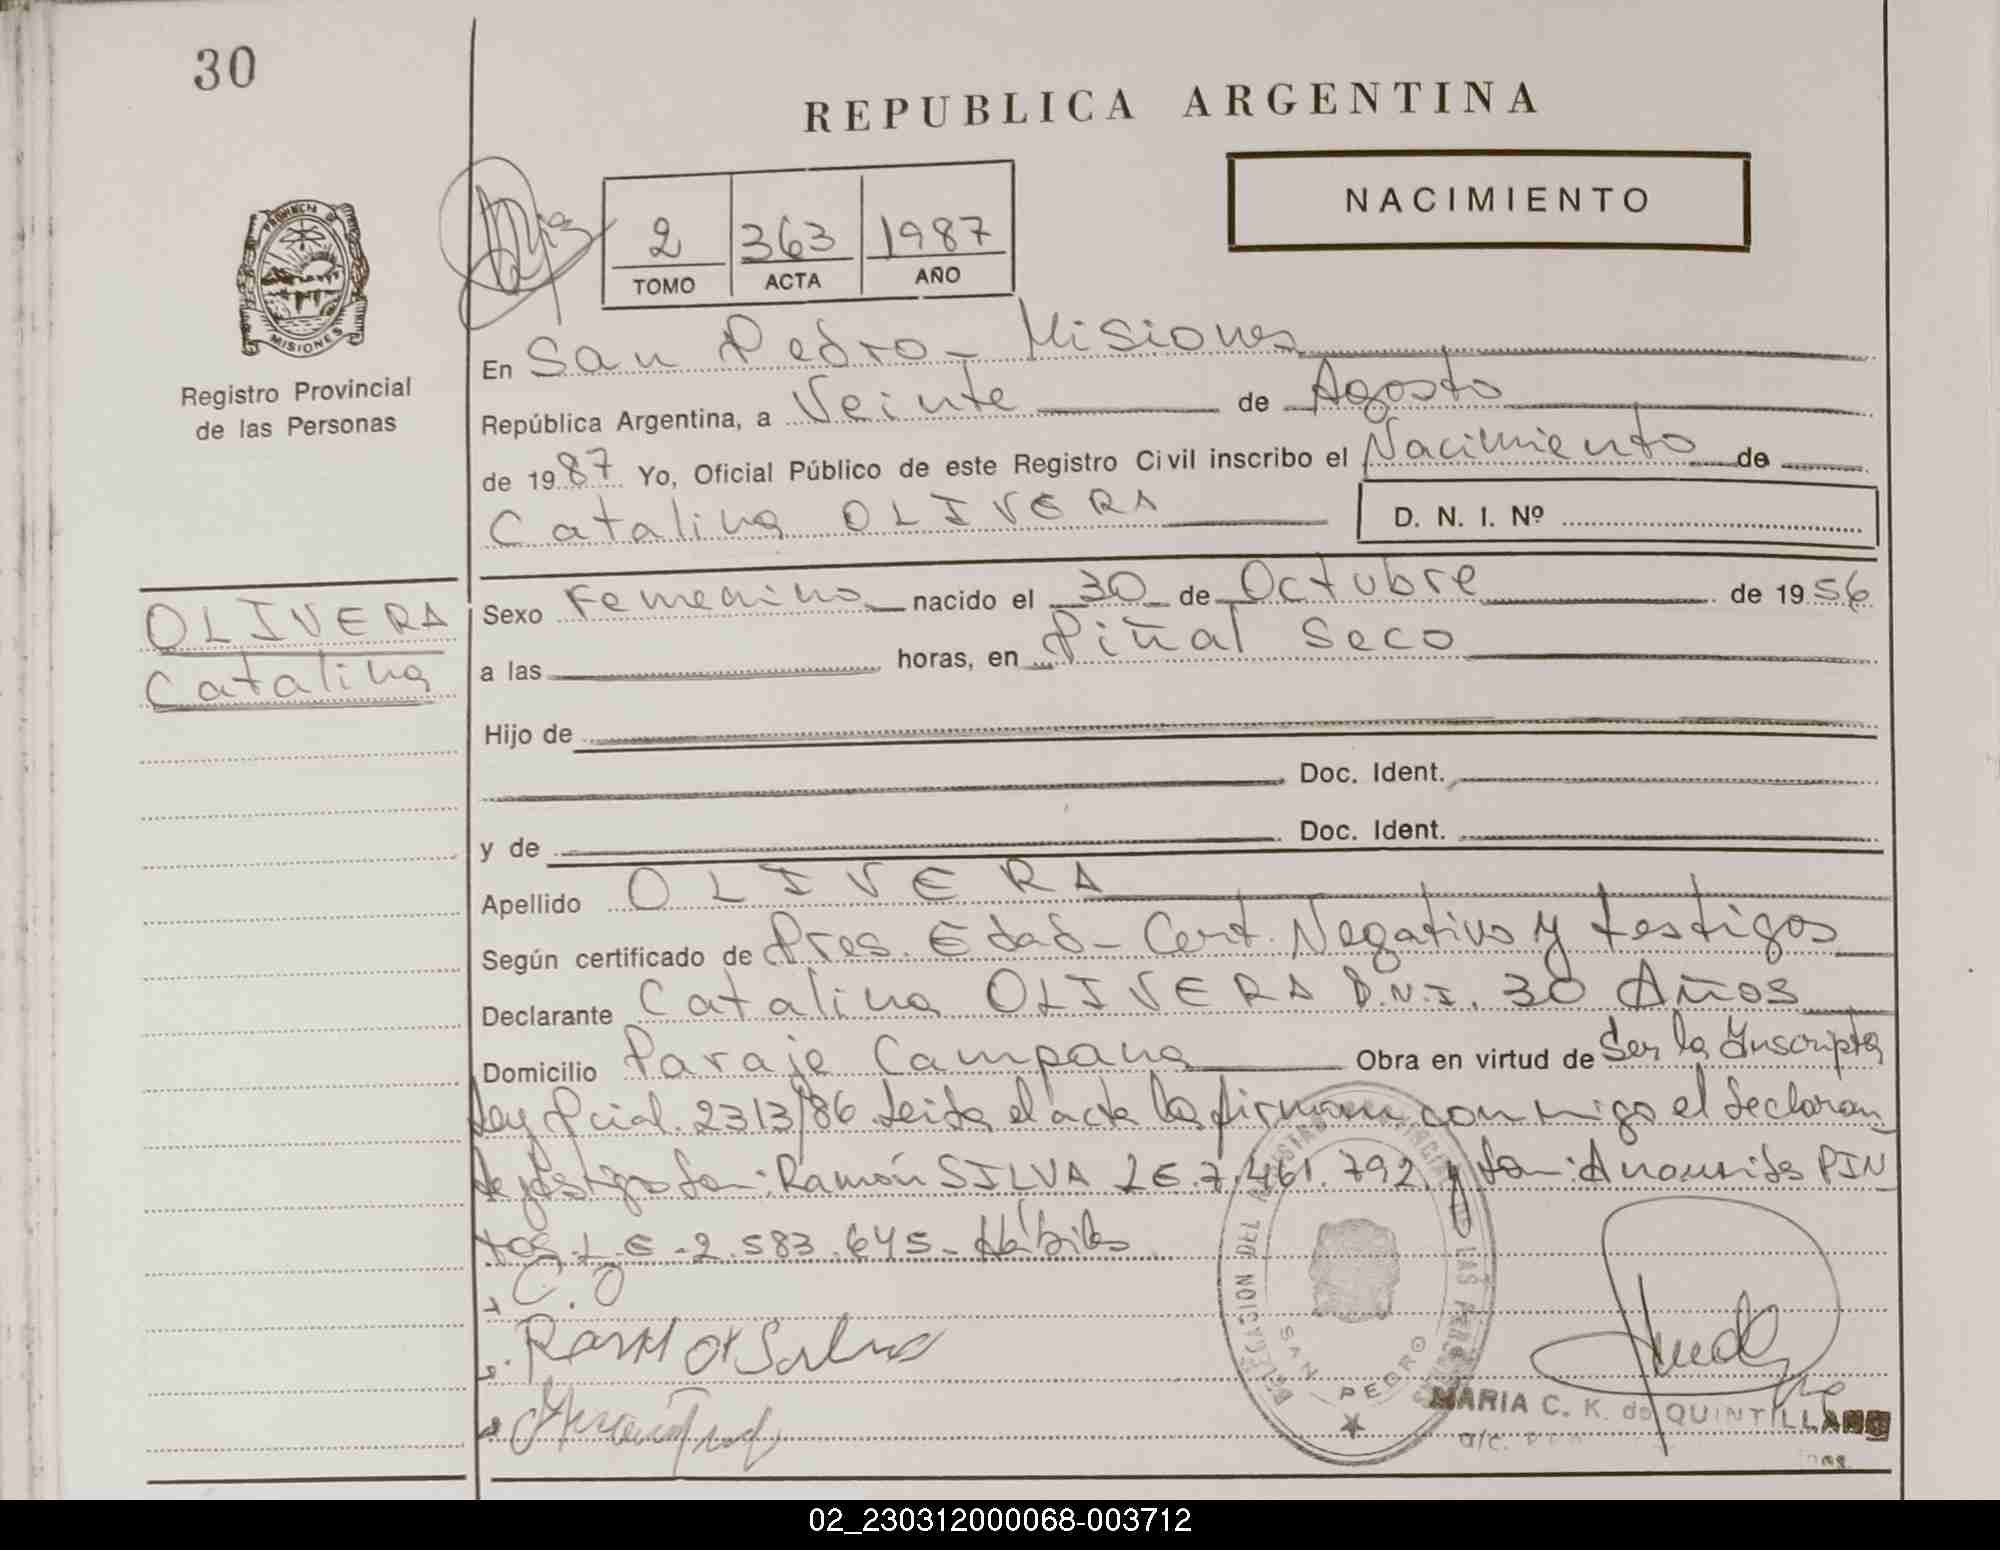 30
REPUBLICA ARGENTINA
NACIMIENTO
2 363 1987
TOMO ACTA AÑO
PROVINCIA DE
MISIONES
Registro Provincial
de las Personas
En San Pedro - Misiones
República Argentina, a Veinte de Agosto
de 1987 Yo, Oficial Público de este Registro Civil inscribo el Nacimiento de
Catalina OLIVERA D. N. I. Nº
OLIVERA
Catalina
Sexo Femenino nacido el 30 de Octubre de 1956
a las horas, en Piñal Seco
Hijo de
Doc. Ident.
y de Doc. Ident.
Apellido OLIVERA
Según certificado de Pres. Edad - Cert. Negativo y testigos
Declarante Catalina OLIVERA D.N.I. 30 Años
Domicilio Paraje Campana Obra en virtud de Ser la Inscripta
Ley Pcial. 2313/86 Leida el acta la firman conmigo el declaran
te y testigos Don: Ramón SILVA LE.7.461.792 y Don: PIN
tos. L.E. 2.583.645 - Hábiles
C.O
DELEGACION DEL REGISTRO PROVINCIAL DE LAS PERSONAS
SAN PEDRO
MARIA C. K. de QUINTILLAN
a/c.
02_230312000068-003712